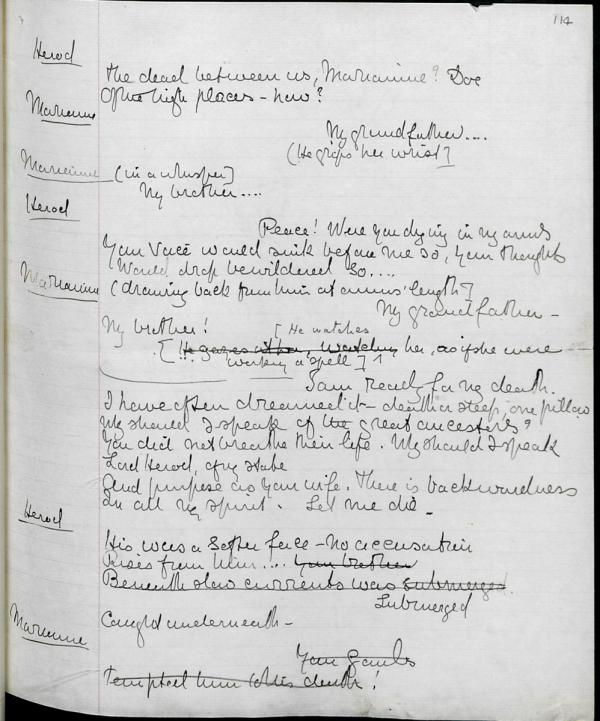 114
Herod
the dead between us, Mariamne? Doe
Of the high places - how?
Mariamne
My grandfather....
(He grips her wrist]
Mariamne (in a whisper]
My brother....
Herod
Peace! Were you dying in my arms
Your voice would sink before me so, your thoughts
Would drop bewildered so....
Mariamne (drawing back from him at arms' length]
My grandfather -
My brother! [He watches
[He gazes at her, watching her, as if she were
working a spell]
I am ready for my death.
I have often dreamed it - death or sleep, one pillow
Why should I speak of the great ancestors?
You did not breathe their life. Why should I speak
Lord Herod, of my state
And purpose as your wife. There is backwardness
In all my spirit. Let me die -
Herod
His was a softer face - no accusation
Rises from him.... Your brother
Beneath slow currents was submerged
Submerged
Caught underneath -
Mariamne
Your Gauls
Tempted him to his death!